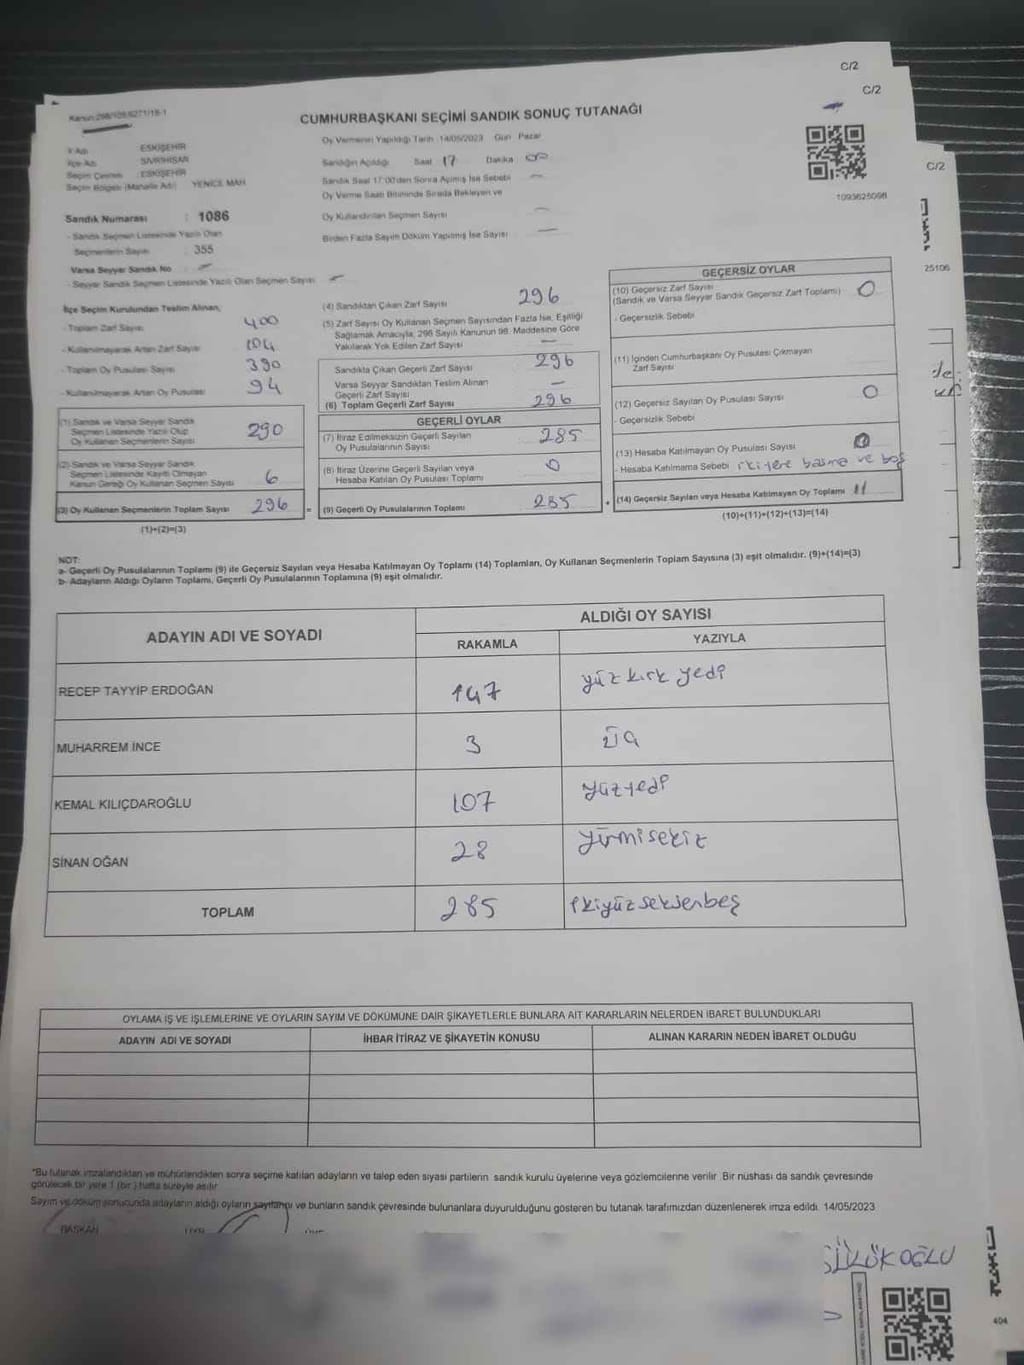 C/2
C/2
C/2
Kanun:298/105,6271/18-1
CUMHURBAŞKANI SEÇİMİ SANDIK SONUÇ TUTANAĞI
Oy Vermenin Yapıldığı Tarih 14/05/2023 Gün Pazar
İl Adı ESKİŞEHİR
İlçe Adı SİVRİHİSAR
Seçim Çevresi : ESKİŞEHİR
Seçim Bölgesi (Mahalle Adı) YENİCE MAH
Sandığın Açıldığı Saat 17 Dakika 00
Sandık Saat 17:00'den Sonra Açılmış İse Sebebi
Oy Verme Saati Bitiminde Sırada Bekleyen ve
Oy Kullandırılan Seçmen Sayısı
Birden Fazla Sayım Döküm Yapılmış İse Sayısı
1093625098
25106
Sandık Numarası : 1086
- Sandık Seçmen Listesinde Yazılı Olan
Seçmenlerin Sayısı : 355
Varsa Seyyar Sandık No
- Seyyar Sandık Seçmen Listesinde Yazılı Olan Seçmen Sayısı
İlçe Seçim Kurulundan Teslim Alınan;
- Toplam Zarf Sayısı 400
- Kullanılmayarak Artan Zarf Sayısı 104
- Toplam Oy Pusulası Sayısı 390
- Kullanılmayarak Artan Oy Pusulası 94
(1) Sandık ve Varsa Seyyar Sandık
Seçmen Listesinde Yazılı Olup
Oy Kullanan Seçmenlerin Sayısı 290
(2) Sandık ve Varsa Seyyar Sandık
Seçmen Listesinde Kayıtlı Olmayan
Kanun Gereği Oy Kullanan Seçmen Sayısı 6
(3) Oy Kullanan Seçmenlerin Toplam Sayısı 296
(1)+(2)=(3)
(4) Sandıktan Çıkan Zarf Sayısı 296
(5) Zarf Sayısı Oy Kullanan Seçmen Sayısından Fazla İse, Eşitliği
Sağlamak Amacıyla, 298 Sayılı Kanunun 98. Maddesine Göre
Yakılarak Yok Edilen Zarf Sayısı
Sandıkta Çıkan Geçerli Zarf Sayısı 296
Varsa Seyyar Sandıktan Teslim Alınan
Geçerli Zarf Sayısı
(6) Toplam Geçerli Zarf Sayısı 296
GEÇERLİ OYLAR
(7) İtiraz Edilmeksizin Geçerli Sayılan
Oy Pusulalarının Sayısı 285
(8) İtiraz Üzerine Geçerli Sayılan veya
Hesaba Katılan Oy Pusulası Toplamı 0
= (9) Geçerli Oy Pusulalarının Toplamı 285
GEÇERSİZ OYLAR
(10) Geçersiz Zarf Sayısı
(Sandık ve Varsa Seyyar Sandık Geçersiz Zarf Toplamı) 0
- Geçersizlik Sebebi
(11) İçinden Cumhurbaşkanı Oy Pusulası Çıkmayan
Zarf Sayısı
(12) Geçersiz Sayılan Oy Pusulası Sayısı 0
- Geçersizlik Sebebi
(13) Hesaba Katılmayan Oy Pusulası Sayısı
- Hesaba Katılmama Sebebi ikiyere basma ve boş
+ (14) Geçersiz Sayılan veya Hesaba Katılmayan Oy Toplamı 11
(10)+(11)+(12)+(13)=(14)
NOT:
a- Geçerli Oy Pusulalarının Toplamı (9) ile Geçersiz Sayılan veya Hesaba Katılmayan Oy Toplamı (14) Toplamları, Oy Kullanan Seçmenlerin Toplam Sayısına (3) eşit olmalıdır. (9)+(14)=(3)
b- Adayların Aldığı Oyların Toplamı, Geçerli Oy Pusulalarının Toplamına (9) eşit olmalıdır.
ADAYIN ADI VE SOYADI
ALDIĞI OY SAYISI
RAKAMLA YAZIYLA
RECEP TAYYİP ERDOĞAN 147 yüz kırk yedi
MUHARREM İNCE 3 üç
KEMAL KILIÇDAROĞLU 107 yüzyedi
SİNAN OĞAN 28 yirmisekiz
TOPLAM 285 ikiyüzseksenbeş
OYLAMA İŞ VE İŞLEMLERİNE VE OYLARIN SAYIM VE DÖKÜMÜNE DAİR ŞİKAYETLERLE BUNLARA AİT KARARLARIN NELERDEN İBARET BULUNDUKLARI
ADAYIN ADI VE SOYADI İHBAR İTİRAZ VE ŞİKAYETİN KONUSU ALINAN KARARIN NEDEN İBARET OLDUĞU
*Bu tutanak imzalandıktan ve mühürlendikten sonra seçime katılan adayların ve talep eden siyasi partilerin sandık kurulu üyelerine veya gözlemcilerine verilir. Bir nüshası da sandık çevresinde
görülecek bir yere 1 (bir) hafta süreyle asılır.
Sayım ve döküm sonucunda adayların aldığı oyların sayılarını ve bunların sandık çevresinde bulunanlara duyurulduğunu gösteren bu tutanak tarafımızdan düzenlenerek imza edildi. 14/05/2023
BAŞKAN
404